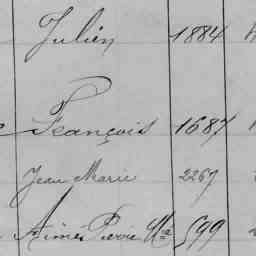 Julien 1884
François 1687
Jean Marie 2267
Aimé Pierre Mie 599